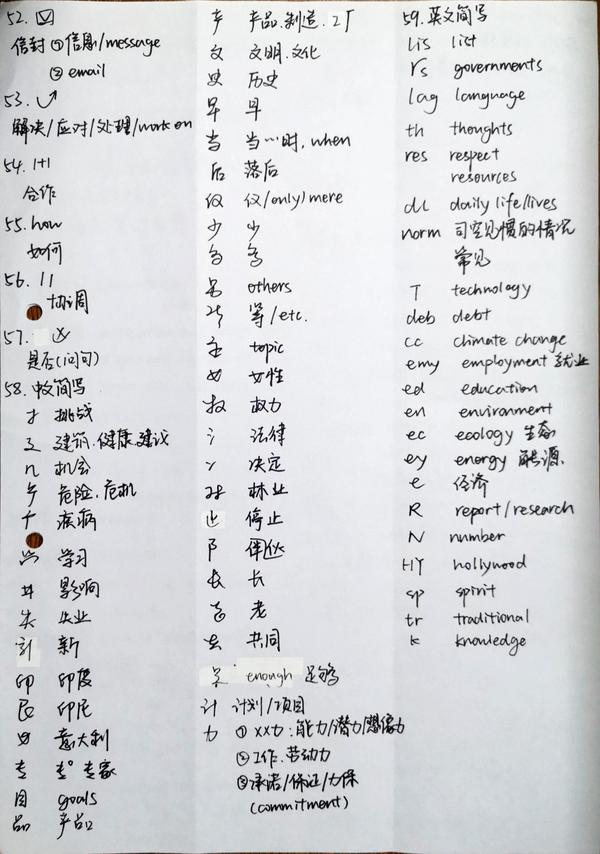 52.
信封 ①信息/message
② email
53.
解决/应对/处理/work on
54. 1+1
合作
55. how
如何
56. 11
协调
57.
是否(问句)
58. 中文简写
才 挑战
建筑.健康.建议
几 机会
危险.危机
疾病
学习
影响
失 失业
新
印 印度
印尼
意大利
专 专° 专家
目 goals
品 产品
产 产品.制造.工厂
文 文明.文化
史 历史
早 早
当 当…时, when
后 落后
仅 仅(only) mere
少 少
多
另 others
等/etc.
主 topic
女 女性
权 权力
氵 法律
冫 决定
林业
止 停止
阝 伴伙
长 长
老
共 共同
足 enough 足够
计 计划/项目
力 ① XX力:能力/潜力/想像力
② 工作.劳动力
③ 承诺/保证/力保
(commitment)
59. 英文简写
lis list
rs governments
lag language
th thoughts
res respect
resources
dl daily life/lives
norm 司空见惯的情况
常见
T technology
deb debt
cc climate change
emy employment 就业
ed education
en environment
ec ecology 生态
ey energy 能源
e 经济
R report/research
N number
HY hollywood
sp spirit
tr traditional
k knowledge